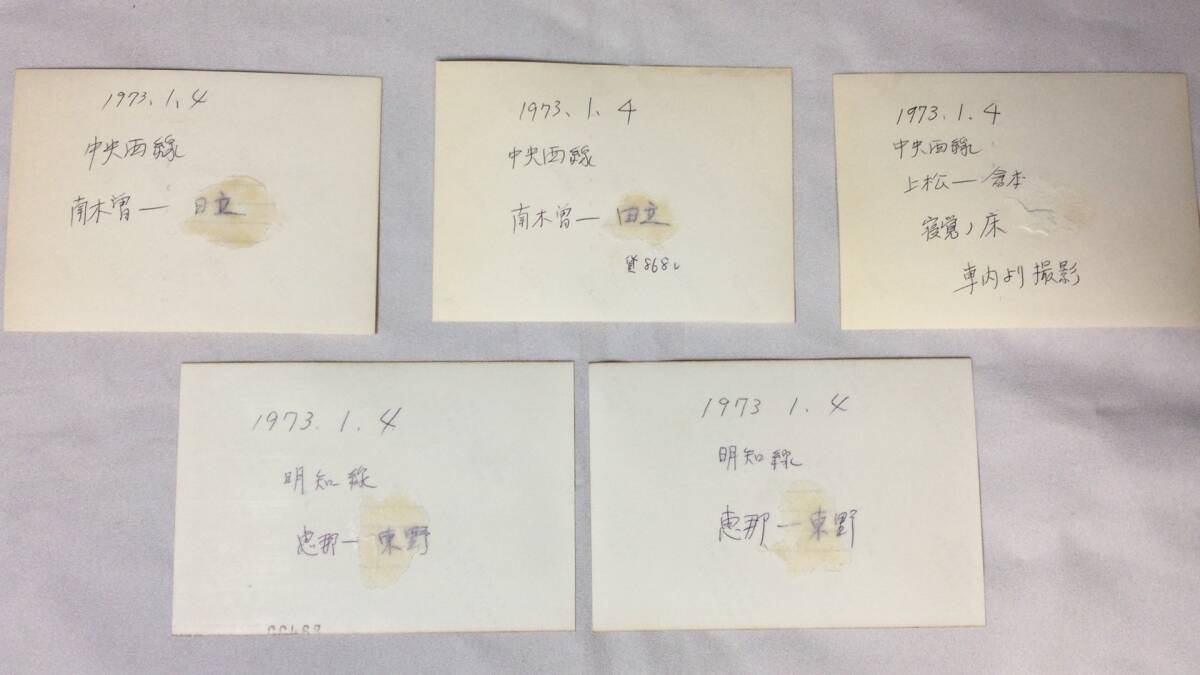 1973.1.4
中央西線
南木曽ー日立
1973.1.4
中央西線
南木曽ー田立
貨868レ
1973.1.4
中央西線
上松ー倉本
寝覚ノ床
車内より撮影
1973.1.4
明知線
恵那ー東野
1973 1.4
明知線
恵那ー東野